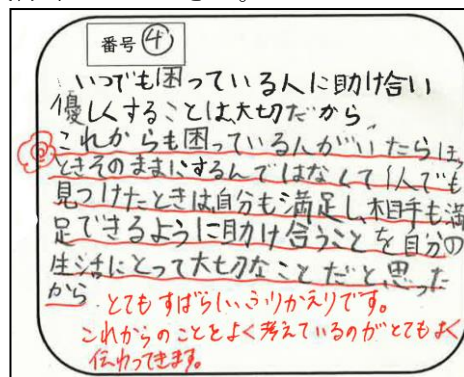 番号④
いつでも困っている人に助け合い
優しくすることは大切だから
これからも困っている人がいたらほ,
ときそのままにするんではなくて1人でも
見つけたときは自分も満足し、相手も満
足できるように助け合うことを自分の
生活にとって大切なことだと思った
から
とてもすばらしいふりかえりです。
これからのことをよく考えているのがとてもよく
伝わってきます。